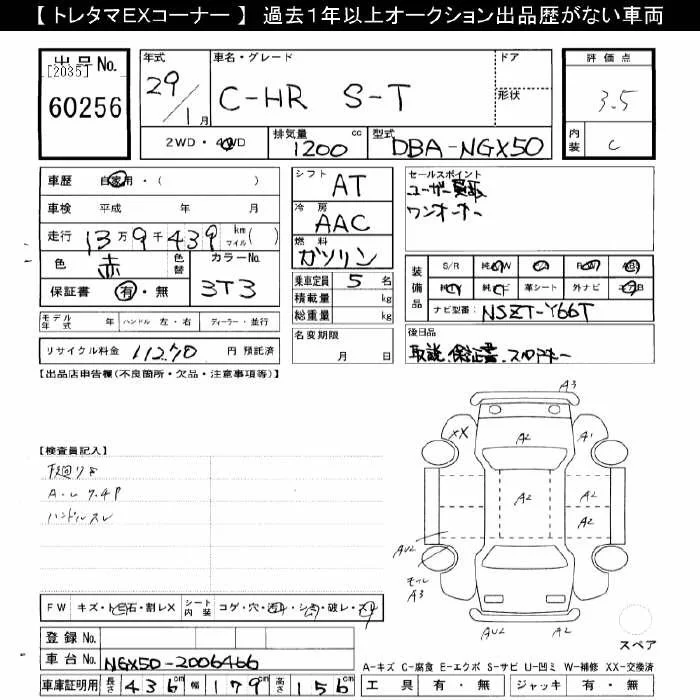 【 トレタマEXコーナー 】 過去1年以上オークション出品歴がない車両
出品No.
[2035]
60256
年式
29/1月
車名・グレード
C-HR S-T
ドア
形状
評価点
3.5
内装
C
2WD・4WD
排気量
1200 cc
型式
DBA-NGX50
車歴 自家用・( )
車検 平成 年 月
走行 13万9千439 km マイル( )
色 赤 色替 カラーNo. 3T3
保証書 有・無
モデル年式 年 ハンドル 左・右 ディーラー・並行
リサイクル料金 11270 円 預託済
シフト AT
冷房 AAC
燃料 ガソリン
乗車定員 5 名
積載量 kg
総重量 kg
名変期限
月 日
セールスポイント
ユーザー買取
ワンオーナー
装備品
S/R
革シート 外ナビ
ナビ型番: NSZT-Y66T
後日品
取説.保証書.スペアキー
【出品店申告欄(不良箇所・欠品・注意事項等)】
【検査員記入】
下廻りサ
ハンドルスレ
FW キズ・飛石・割レX シート内装 コゲ・穴・汚レ・シミ・破レ・スレ
登録No.
車台No. NGX50-2006466
車庫証明用 長さ 436cm 幅 179cm 高さ 156cm
A3
XX
A2
A1
A2
A2
A2
AU2
モール
A3
A2
AU2
A2
スペア
A-キズ C-腐食 E-エクボ S-サビ U-凹ミ W-補修 XX-交換済
工具 有・無 ジャッキ 有・無